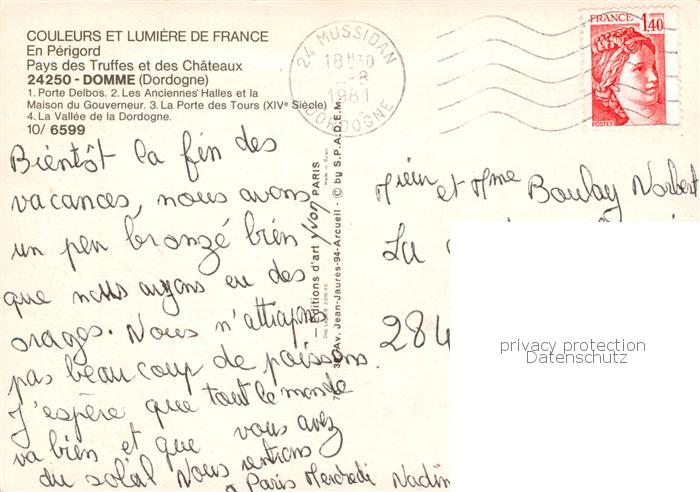 COULEURS ET LUMIÈRE DE FRANCE
En Périgord
Pays des Truffes et des Châteaux
24250 - DOMME (Dordogne)
1. Porte Delbos. 2. Les Anciennes Halles et la
Maison du Gouverneur. 3. La Porte des Tours (XIVe Siècle)
4. La Vallée de la Dordogne.
10/ 6599
24 MUSSIDAN
18H30
-8
1981
DORDOGNE
FRANCE
1,40
POSTES
Bientôt la fin des
vacances, nous avons
un peu bronzé bien
que nous ayons eu des
orages. Nous n'attrapons
pas beaucoup de poissons.
J'espère que tout le monde
va bien et que vous avez
du soleil Nous rentrons
à Paris Mercredi Nadin
Éditions d'art Yvon PARIS
Av. Jean-Jaurès-94-Arcueil - © by S.P.A.D.E.M.
Mr et Mme Boulay Norbert
La
284
privacy protection
Datenschutz